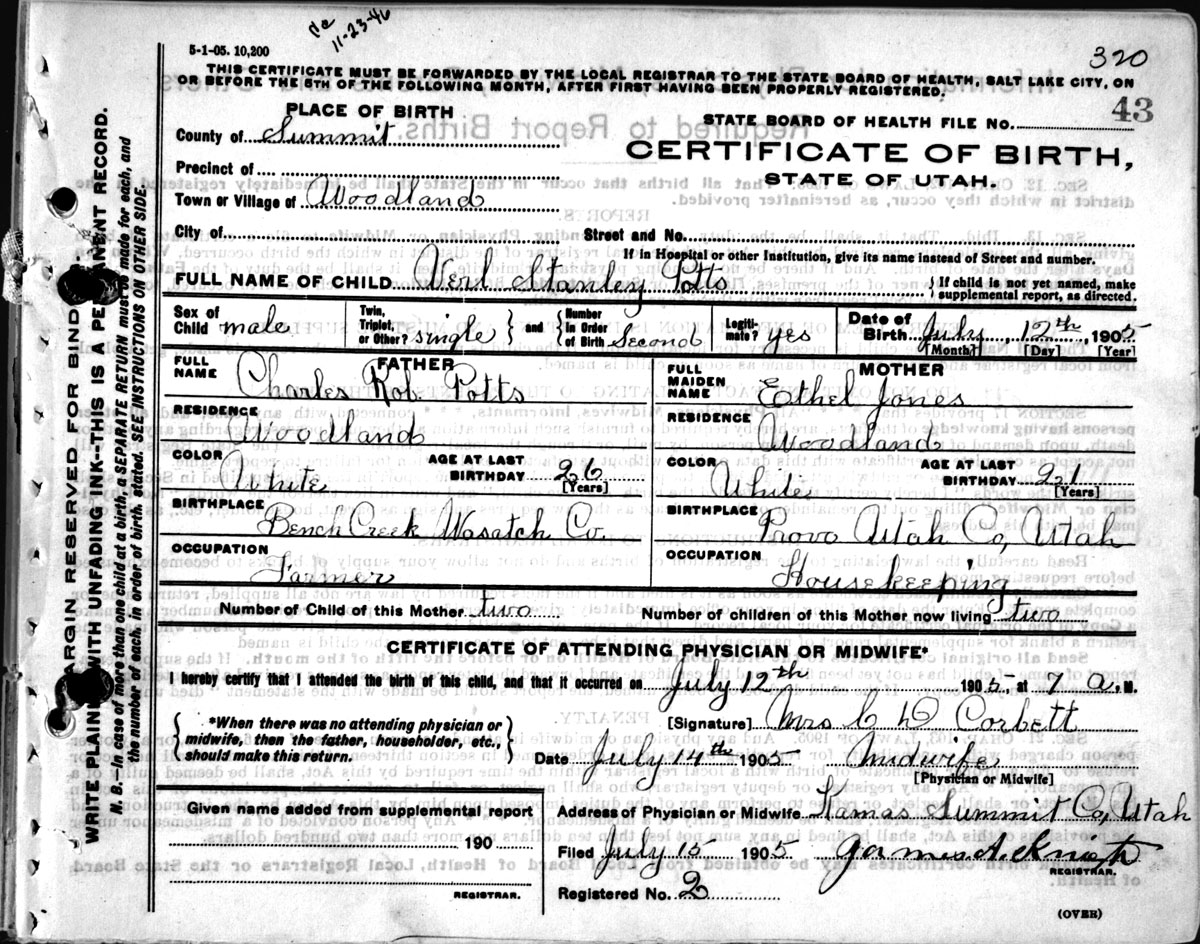 5-1-05. 10,200
11-23-46
320
THIS CERTIFICATE MUST BE FORWARDED BY THE LOCAL REGISTRAR TO THE STATE BOARD OF HEALTH, SALT LAKE CITY, ON
OR BEFORE THE 5TH OF THE FOLLOWING MONTH, AFTER FIRST HAVING BEEN PROPERLY REGISTERED.
43
PLACE OF BIRTH
STATE BOARD OF HEALTH FILE NO.
County of Summit
CERTIFICATE OF BIRTH,
STATE OF UTAH.
Precinct of
Town or Village of Woodland
City of Street and No.
If in Hospital or other Institution, give its name instead of Street and number.
FULL NAME OF CHILD Verl Stanley Potts { If child is not yet named, make supplemental report, as directed.
Sex of Child male Twin, Triplet, or Other? single } and { Number in Order of Birth Second Legiti-mate? yes Date of Birth July 12th 1905
[Month] [Day] [Year]
FATHER MOTHER
FULL NAME Charles Rob. Potts FULL MAIDEN NAME Ethel Jones
RESIDENCE Woodland RESIDENCE Woodland
COLOR White AGE AT LAST BIRTHDAY 26 [Years] COLOR White AGE AT LAST BIRTHDAY 21 [Years]
BIRTHPLACE Bench Creek Wasatch Co. BIRTHPLACE Provo Utah Co, Utah
OCCUPATION Farmer OCCUPATION Housekeeping
Number of Child of this Mother two Number of children of this Mother now living two
CERTIFICATE OF ATTENDING PHYSICIAN OR MIDWIFE*
I hereby certify that I attended the birth of this child, and that it occurred on July 12th 1905 at 7 a. M.
{ *When there was no attending physician or midwife, then the father, householder, etc., should make this return. }
[Signature] Mrs C D Corbett
Date July 14th 1905 Midwife
[Physician or Midwife]
Given name added from supplemental report
190
REGISTRAR.
Address of Physician or Midwife Kamas Summit Co, Utah
Filed July 15 1905 James A.
REGISTRAR.
Registered No. 2
(OVER)
MARGIN RESERVED FOR BINDING.
WRITE PLAINLY WITH UNFADING INK--THIS IS A PERMANENT RECORD.
N. B.--In case of more than one child at a birth, a SEPARATE RETURN must be made for each, and
the number of each, in order of birth, stated. SEE INSTRUCTIONS ON OTHER SIDE.